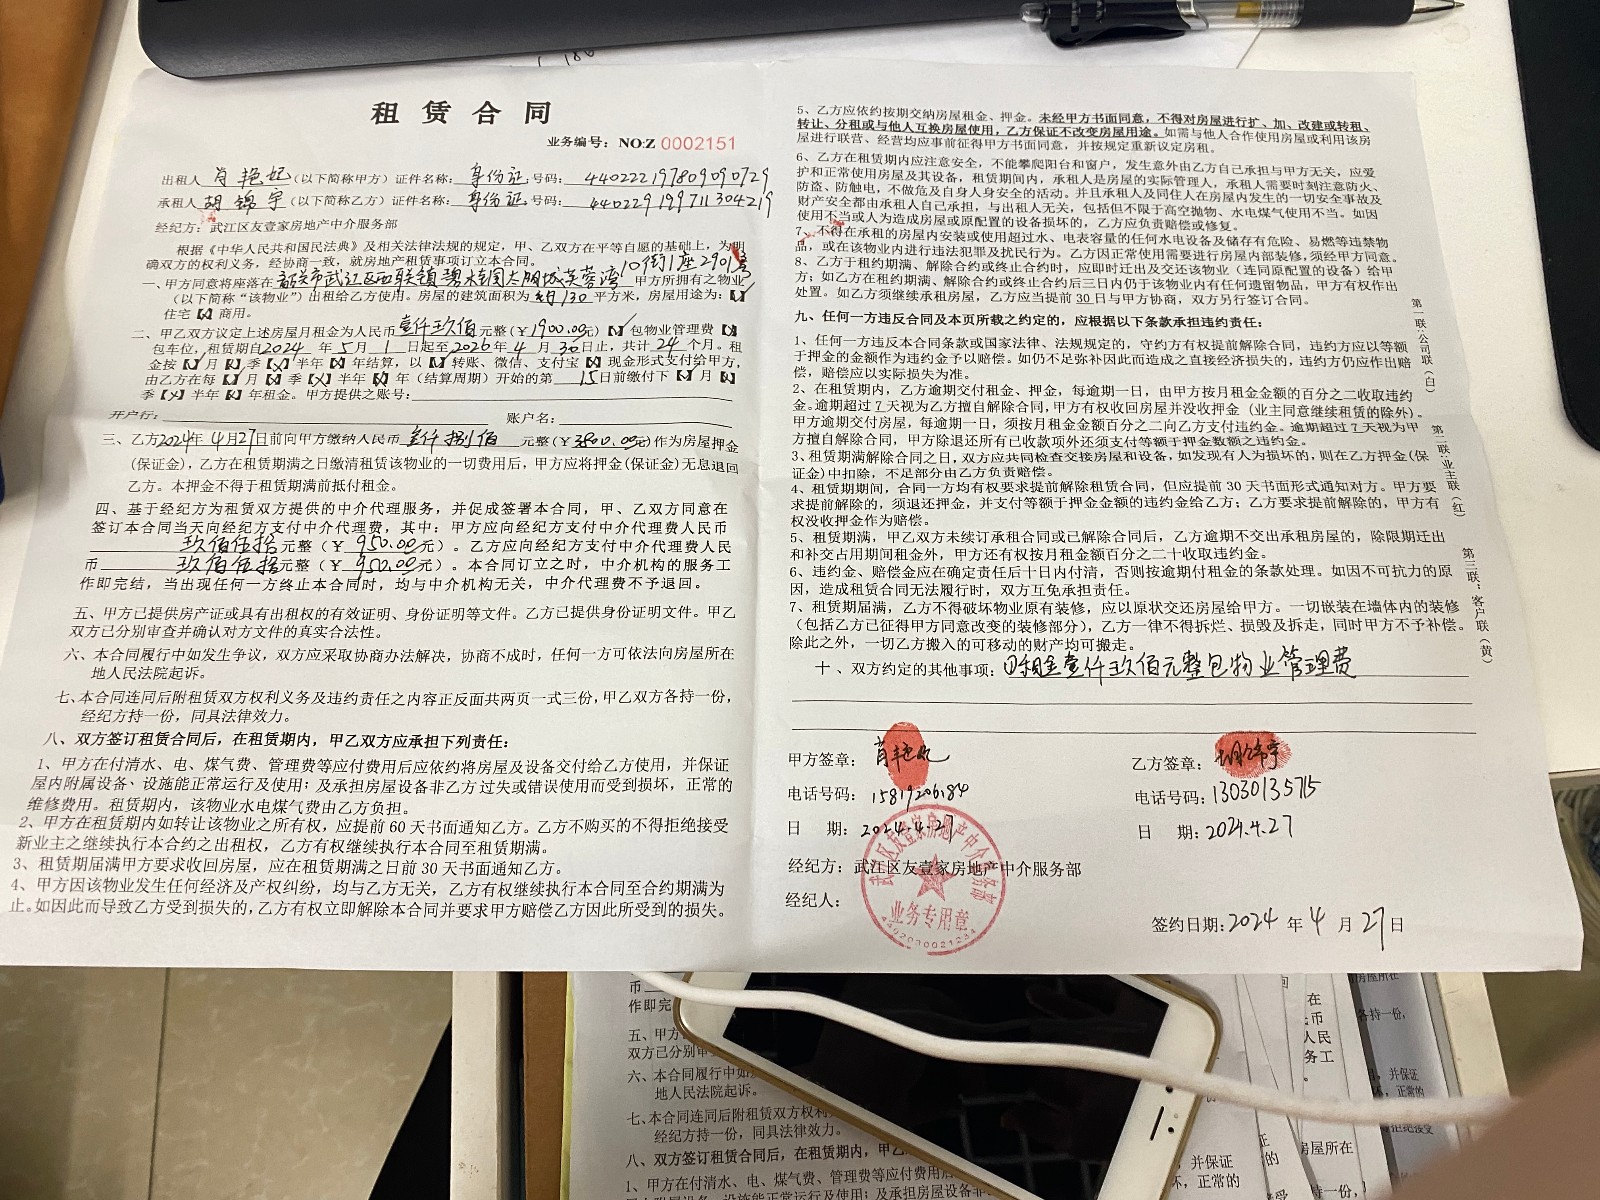 租 赁 合 同
业务编号：NO:Z 0002151
出租人 肖艳妃（以下简称甲方）证件名称：身份证 号码：440222197809090729
承租人 胡锦宇（以下简称乙方）证件名称：身份证 号码：440229199711304219
经纪方：武江区友壹家房地产中介服务部
根据《中华人民共和国民法典》及相关法律法规的规定，甲、乙双方在平等自愿的基础上，为明
确双方的权利义务，经协商一致，就房地产租赁事项订立本合同。
10街1座2901号
一、甲方同意将座落在韶关市武江区西联镇碧水花园太阳城芙蓉湾 甲方所拥有之物业
（以下简称“该物业”）出租给乙方使用。房屋的建筑面积为 130 平方米，房屋用途为：【】
住宅【】商用。
二、甲乙双方议定上述房屋月租金为人民币 壹仟玖佰 元整（¥1900.00元）【】包物业管理费【】
包车位，租赁期自2024 年 5 月 1 日起至2026年 4 月 30日止，共计 24 个月。租
金按【】月【】季【】半年【】年结算，以【】转账、微信、支付宝【】现金形式支付给甲方，
由乙方在每【】月【】季【】半年【】年（结算周期）开始的第 15日前缴付下【】月【】
季【】半年【】年租金。甲方提供之账号：
开户行： 账户名：
三、乙方2024年 4月27日前向甲方缴纳人民币 叁仟捌佰 元整（¥3800.00元）作为房屋押金
(保证金)，乙方在租赁期满之日缴清租赁该物业的一切费用后，甲方应将押金(保证金)无息退回
乙方。本押金不得于租赁期满前抵付租金。
四、基于经纪方为租赁双方提供的中介代理服务，并促成签署本合同，甲、乙双方同意在
签订本合同当天向经纪方支付中介代理费，其中：甲方应向经纪方支付中介代理费人民币
玖佰伍拾元整（¥ 950.00元）。乙方应向经纪方支付中介代理费人民
币 玖佰伍拾元整（¥ 950.00元）。本合同订立之时，中介机构的服务工
作即完结，当出现任何一方终止本合同时，均与中介机构无关，中介代理费不予退回。
五、甲方已提供房产证或具有出租权的有效证明、身份证明等文件。乙方已提供身份证明文件。甲乙
双方已分别审查并确认对方文件的真实合法性。
六、本合同履行中如发生争议，双方应采取协商办法解决，协商不成时，任何一方可依法向房屋所在
地人民法院起诉。
七、本合同连同后附租赁双方权利义务及违约责任之内容正反面共两页一式三份，甲乙双方各持一份，
经纪方持一份，同具法律效力。
八、双方签订租赁合同后，在租赁期内，甲乙双方应承担下列责任：
1、甲方在付清水、电、煤气费、管理费等应付费用后应依约将房屋及设备交付给乙方使用，并保证
屋内附属设备、设施能正常运行及使用；及承担房屋设备非乙方过失或错误使用而受到损坏，正常的
维修费用。租赁期内，该物业水电煤气费由乙方负担。
2、甲方在租赁期内如转让该物业之所有权，应提前 60 天书面通知乙方。乙方不购买的不得拒绝接受
新业主之继续执行本合约之出租权，乙方有权继续执行本合同至租赁期满。
3、租赁期届满甲方要求收回房屋，应在租赁期满之日前 30 天书面通知乙方。
4、甲方因该物业发生任何经济及产权纠纷，均与乙方无关，乙方有权继续执行本合同至合约期满为
止。如因此而导致乙方受到损失的，乙方有权立即解除本合同并要求甲方赔偿乙方因此所受到的损失。
5、乙方应依约按期交纳房屋租金、押金。未经甲方书面同意，不得对房屋进行扩、加、改建或转租、
转让、分租或与他人互换房屋使用，乙方保证不改变房屋用途。如需与他人合作使用房屋或利用该房
屋进行联营、经营均应事前征得甲方书面同意，并按规定重新议定房租。
6、乙方在租赁期内应注意安全，不能攀爬阳台和窗户，发生意外由乙方自己承担与甲方无关，应爱
护和正常使用房屋及其设备，租赁期间内，承租人是房屋的实际管理人，承租人需要时刻注意防火、
防盗、防触电，不做危及自身人身安全的活动。并且承租人及同住人在房屋内发生的一切安全事故及
财产安全都由承租人自己承担，与出租人无关，包括但不限于高空抛物、水电煤气使用不当。如因
使用不当或人为造成房屋或原配置的设备损坏的，乙方应负责赔偿或修复。
7、不得在承租的房屋内安装或使用超过水、电表容量的任何水电设备及储存有危险、易燃等违禁物
品，或在该物业内进行违法犯罪及扰民行为。乙方因正常使用需要进行房屋内部装修，须经甲方同意。
8、乙方于租约期满、解除合约或终止合约时，应即时迁出及交还该物业（连同原配置的设备）给甲
方；如乙方在租约期满、解除合约或终止合约后三日内仍于该物业内有任何遗留物品，甲方有权作出
处置。如乙方须继续承租房屋，乙方应当提前 30 日与甲方协商，双方另行签订合同。
九、任何一方违反合同及本页所载之约定的，应根据以下条款承担违约责任：
1、任何一方违反本合同条款或国家法律、法规规定的，守约方有权提前解除合同，违约方应以等额
于押金的金额作为违约金予以赔偿。如仍不足弥补因此而造成之直接经济损失的，违约方仍应作出赔
偿，赔偿应以实际损失为准。
2、在租赁期内，乙方逾期交付租金、押金，每逾期一日，由甲方按月租金金额的百分之二收取违约
金。逾期超过 7 天视为乙方擅自解除合同，甲方有权收回房屋并没收押金（业主同意继续租赁的除外）。
甲方逾期交付房屋，每逾期一日，须按月租金金额百分之二向乙方支付违约金。逾期超过 7 天视为甲
方擅自解除合同，甲方除退还所有已收款项外还须支付等额于押金数额之违约金。
3、租赁期满解除合同之日，双方应共同检查交接房屋和设备，如发现有人为损坏的，则在乙方押金(保
证金)中扣除，不足部分由乙方负责赔偿。
4、租赁期期间，合同一方均有权要求提前解除租赁合同，但应提前 30 天书面形式通知对方。甲方要
求提前解除的，须退还押金，并支付等额于押金金额的违约金给乙方；乙方要求提前解除的，甲方有
权没收押金作为赔偿。
5、租赁期满，甲乙双方未续订承租合同或已解除合同后，乙方逾期不交出承租房屋的，除限期迁出
和补交占用期间租金外，甲方还有权按月租金额百分之二十收取违约金。
6、违约金、赔偿金应在确定责任后十日内付清，否则按逾期付租金的条款处理。如因不可抗力的原
因，造成租赁合同无法履行时，双方互免承担责任。
7、租赁期届满，乙方不得破坏物业原有装修，应以原状交还房屋给甲方。一切嵌装在墙体内的装修
（包括乙方已征得甲方同意改变的装修部分），乙方一律不得拆烂、损毁及拆走，同时甲方不予补偿。
除此之外，一切乙方搬入的可移动的财产均可搬走。
十、双方约定的其他事项：①租金壹仟玖佰元整包物业管理费
第一联：公司联（白）
第二联：业主联（红）
第三联：客户联（黄）
甲方签章：肖艳妃
乙方签章：胡锦宇
电话号码：15819206184
电话号码：13030135715
日 期：2024.4.27
日 期：2024.4.27
经纪方：武江区友壹家房地产中介服务部
经纪人：
武江区友壹家房地产中介服务部
业务专用章
4402030021234
签约日期：2024 年 4 月 27日
币
作即完
五、甲方
双方已分别审
六、本合同履行中如
地人民法院起诉。
七、本合同连同后附租赁双方权利
经纪方持一份，同具法律效力。
八、双方签订租赁合同后，在租赁期内，甲
1、甲方在付清水、电、煤气费、管理费等应付费用后